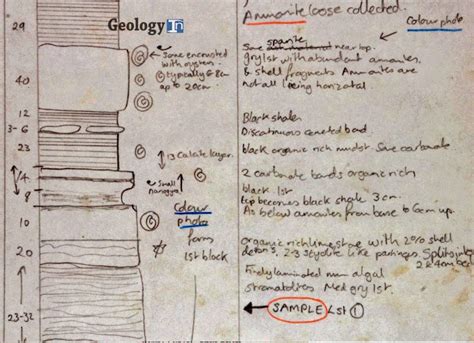 29
40
12
3-6
23
1/4
8
10
20
23-32
Geology In
Some encrusted
with oysters
typically 6-8cm
up to 20cm.
13 Calcite layer.
Small
Colour
photo
from
1st block
Ammonite loose collected.
Colour photo
sparite
Some near top.
grey lst with abundant ammonites.
& shell fragments Ammonites are
not all lying horizontal
Black shales
Discontinuous cemented band.
black organic rich mudst. Some carbonate
2 carbonate bands organic rich
black lst
top becomes black shale 3cm
As below ammonites from base to 6cm up.
organic rich limestone with 2% shell
2-3 stylolite like partings. Splits into
2 & 4cm
Finely laminated algal
stromatolites. Med grey lst.
SAMPLE Lst 1